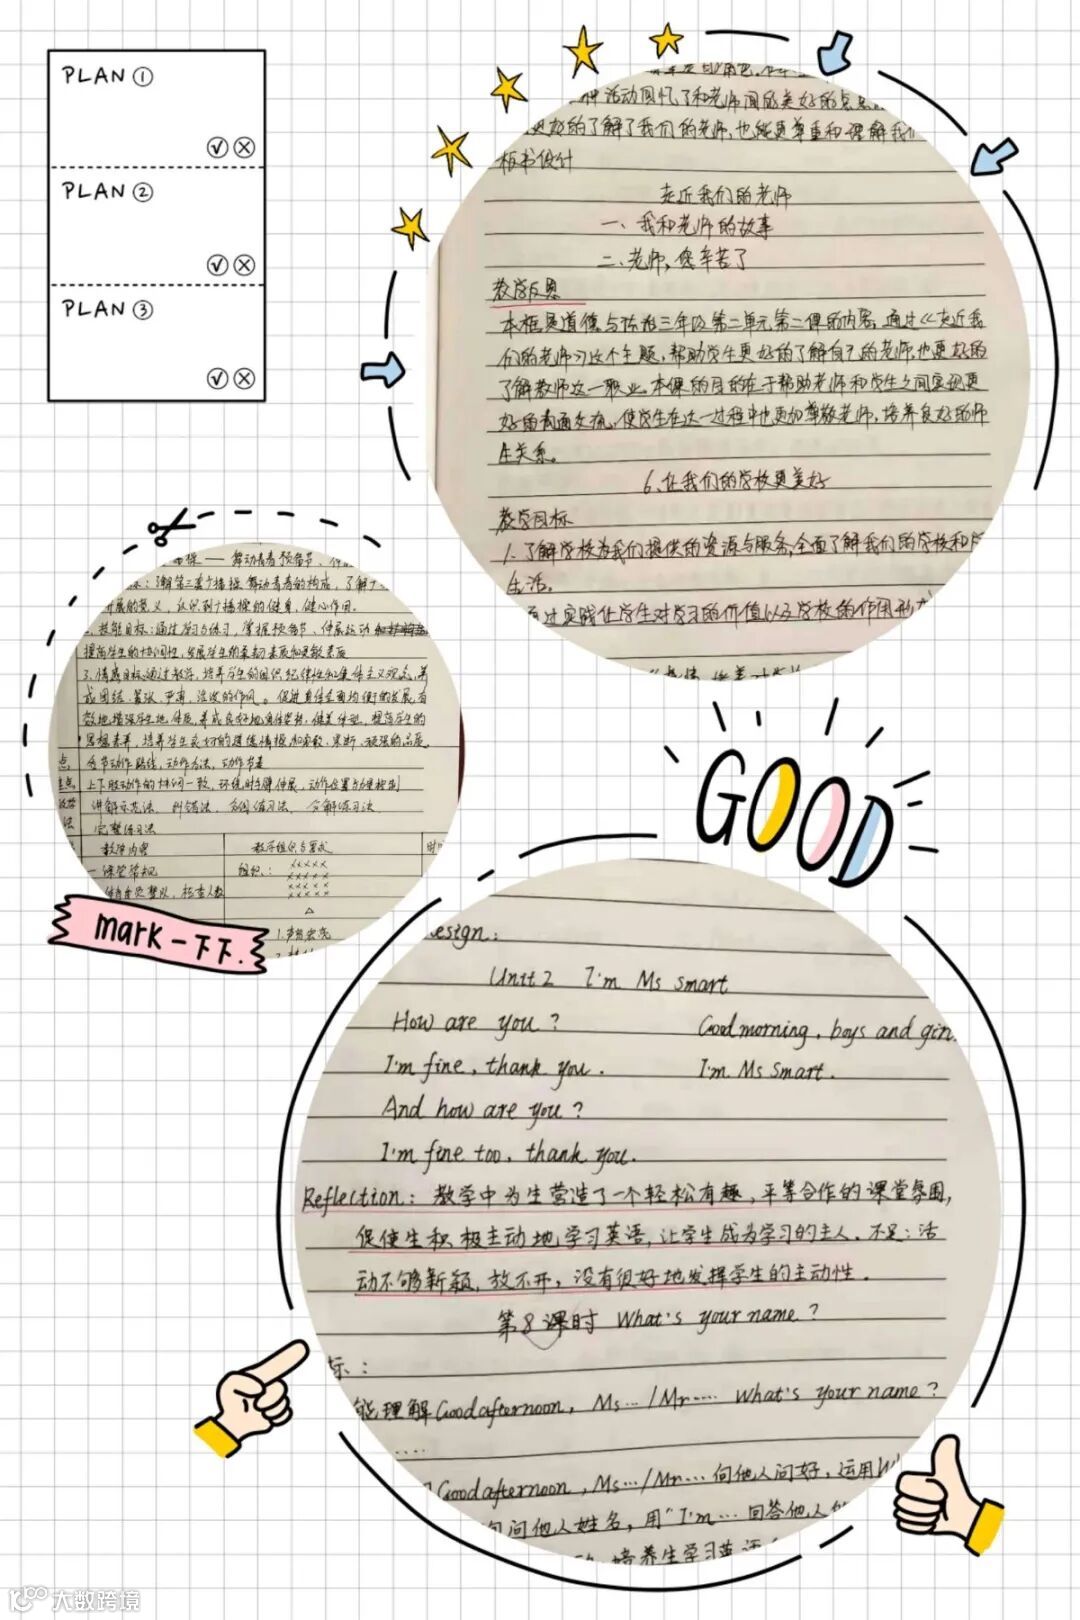 PLAN ①
PLAN ②
PLAN ③
种活动回忆了和老师间的美好的点点
更好的了解了我们的老师,也能更尊重和理解我们
板书设计
走近我们的老师
一、我和老师的故事
二、老师,您辛苦了
教学反思
本框是道德与法治三年级第二单元第二课的内容,通过《走近我
们的老师》这个主题,帮助学生更好的了解自己的老师,也更好的
了解教师这一职业。本课的目的在于帮助老师和学生之间实现更
好的沟通交流,使学生在这一过程中也更加尊敬老师,培养良好的师
生关系。
6、让我们的学校更美好
教学目标
1.了解学校为我们提供的资源与服务,全面了解我们的学校和
生活。
过实践让学生对学习的价值以及学校的作用形
操——舞动青春预备节、
标:了解第三套广播操舞动青春的构成,了解
开展的意义,认识到广播操的健身,健心作用。
2、技能目标:通过学习与练习,掌握预备节、伸展运动
提高学生的协调性,发展学生的柔韧素质和灵敏素质
3、情感目标:通过教学,培养学生的组织纪律性和集体主义观念,养
成团结、紧张、严肃、活泼的作风。促进身体全面均衡的发展,有
效地增强学生地体质,养成良好地身体姿势,健美体型,提高学生的
思想素养,培养学生良好的道德情操和勇敢、果断、顽强的品质。
点 各节动作路线,动作方法,动作节奏
难点 上下肢动作的协调一致,环绕时手臂伸展,动作位置与力度控制
教学 讲解示范法、纠错法、分组练习法、分解练习法
法 完整练习法
教学内容 教学组织与要求 时
一课堂常规 组织:
体育委员整队,检查人数
1.声音宏亮
mark一下下.
GOOD
esign:
Unit 2 I'm Ms Smart
How are you? Good morning, boys and gir
I'm fine, thank you. I'm Ms Smart.
And how are you?
I'm fine too, thank you.
Reflection: 教学中为生营造了一个轻松有趣,平等合作的课堂氛围,
促使生积极主动地学习英语,让学生成为学习的主人。不足:活
动不够新颖,放不开,没有很好地发挥学生的主动性.
第8课时 What's your name?
标:
能理解Good afternoon, Ms.../Mr.... What's your name?
....
Good afternoon, Ms.../Mr....向他人问好,运用W
句问他人姓名,用"I'm...回答他人
培养生学习英语
大数跨境